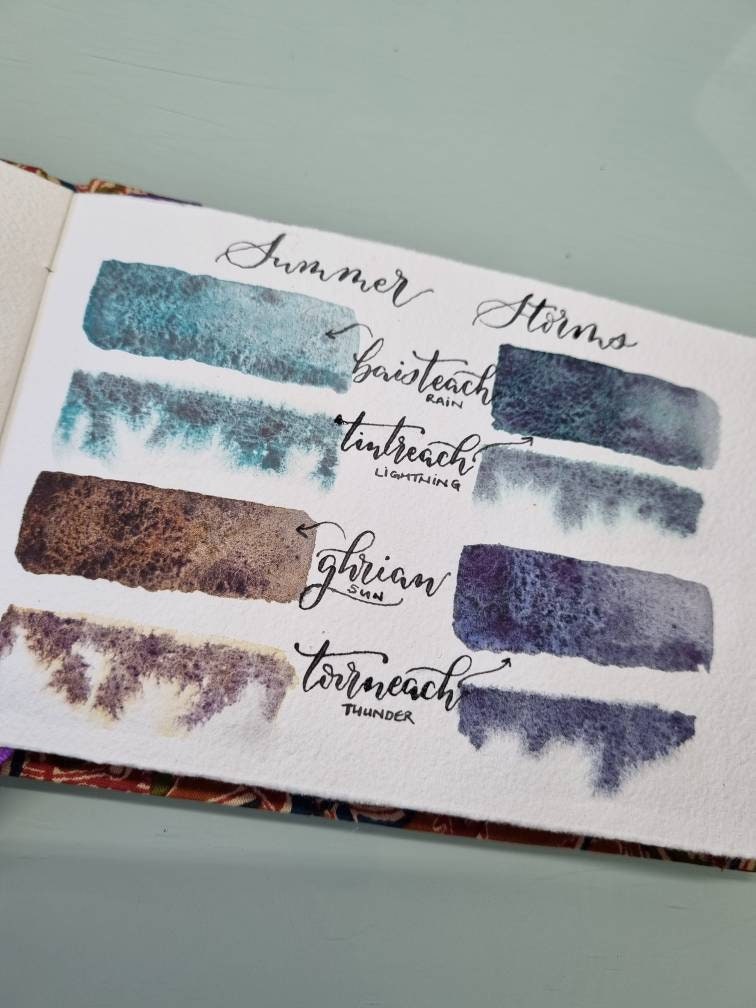 Summer Storms
baisteach
RAIN
tintreach
LIGHTNING
ghrian
SUN
toirneach
THUNDER